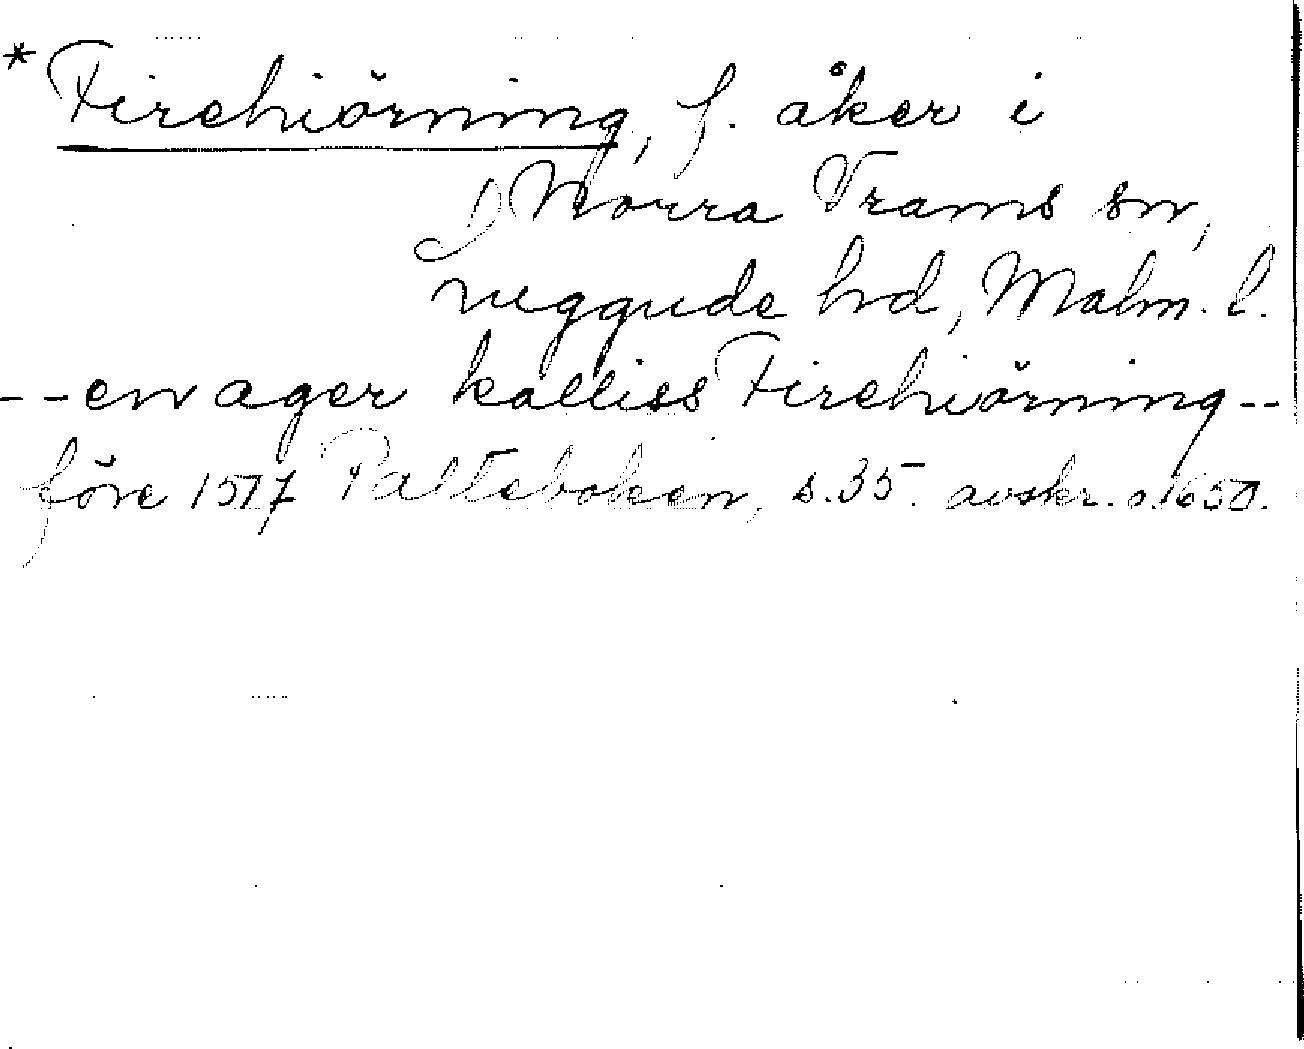 *Firehiörning, f. åker i
Norra Vrams sn,
Luggude hd, Malm. l.
--en ager kalliss Firehiörning--
före 1517 Palteboken, s. 35. avskr. o. 1650.